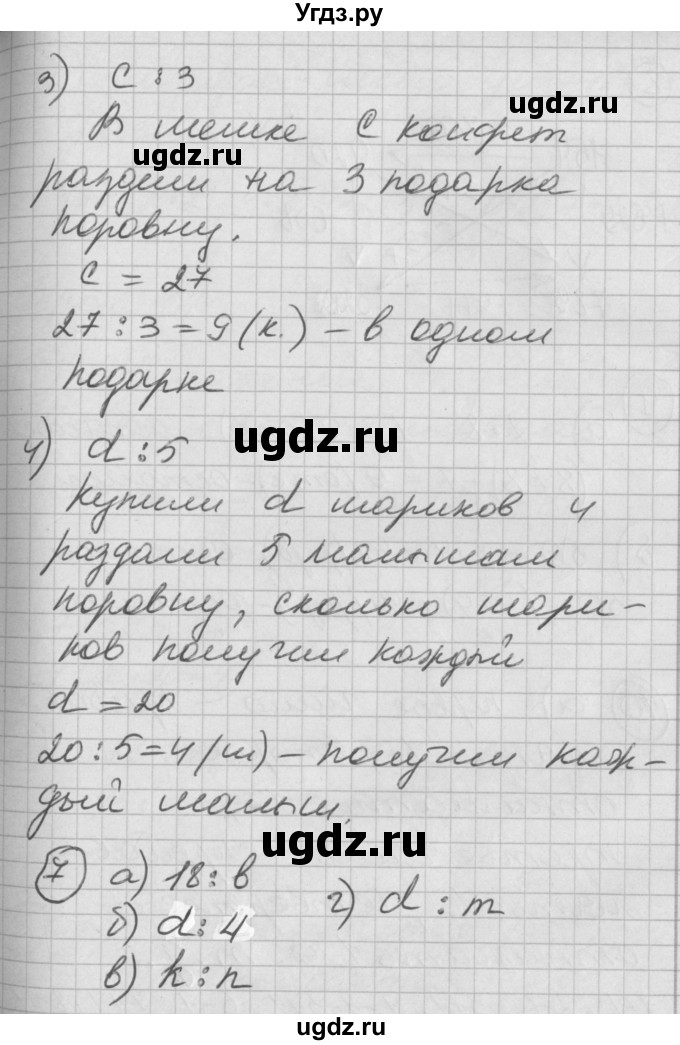 Угдз.ру
3) c : 3
ugdz.ru
В мешке c конфет
ugdz.ru
раздели на 3 подарка
поровну.
c = 27
27 : 3 = 9 (к.) – в одном
подарке
ugdz.ru
4) d : 5
Купили d шариков и
раздали 5 малышам
поровну, сколько шари-
ков получил каждый
d = 20
20 : 5 = 4 (ш) – получил каж-
дый малыш.
ugdz.ru
7 а) 18 : b
г) d : m
б) d : 4
в) k : n
ugdz.ru